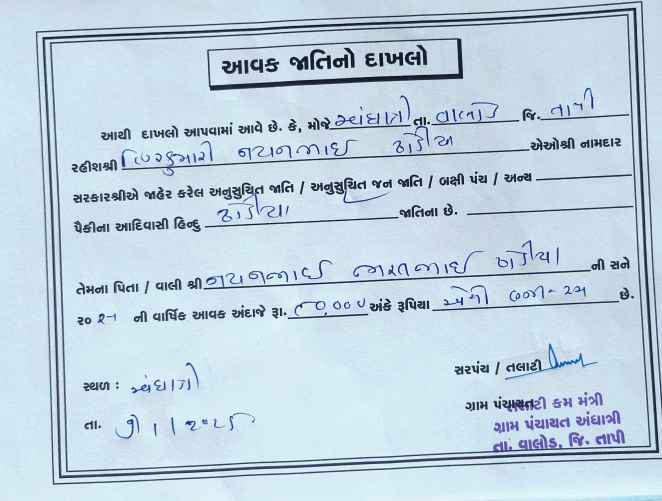 આવક જાતિનો દાખલો
આથી દાખલો આપવામાં આવે છે. કે, મોજે અંધાત્રી તા. વાલોડ જિ. તાપી
રહીશશ્રી નયનભાઈ ઠોડીયા એઓશ્રી નામદાર
સરકારશ્રીએ જાહેર કરેલ અનુસુચિત જાતિ / અનુસુચિત જન જાતિ / બક્ષી પંચ / અન્ય
પૈકીના આદિવાસી હિન્દુ જાતિના છે.
તેમના પિતા / વાલી શ્રી નયનભાઈ ભરતભાઈ ની સને
૨૦ ની વાર્ષિક આવક અંદાજે રૂા. અંકે રૂપિયા છે.
સરપંચ / તલાટી
સ્થળ : અંધાત્રી
ગ્રામ પંચાયત
કમ મંત્રી
તા.
ગ્રામ પંચાયત અંધાત્રી
તા. વાલોડ, જિ. તાપી